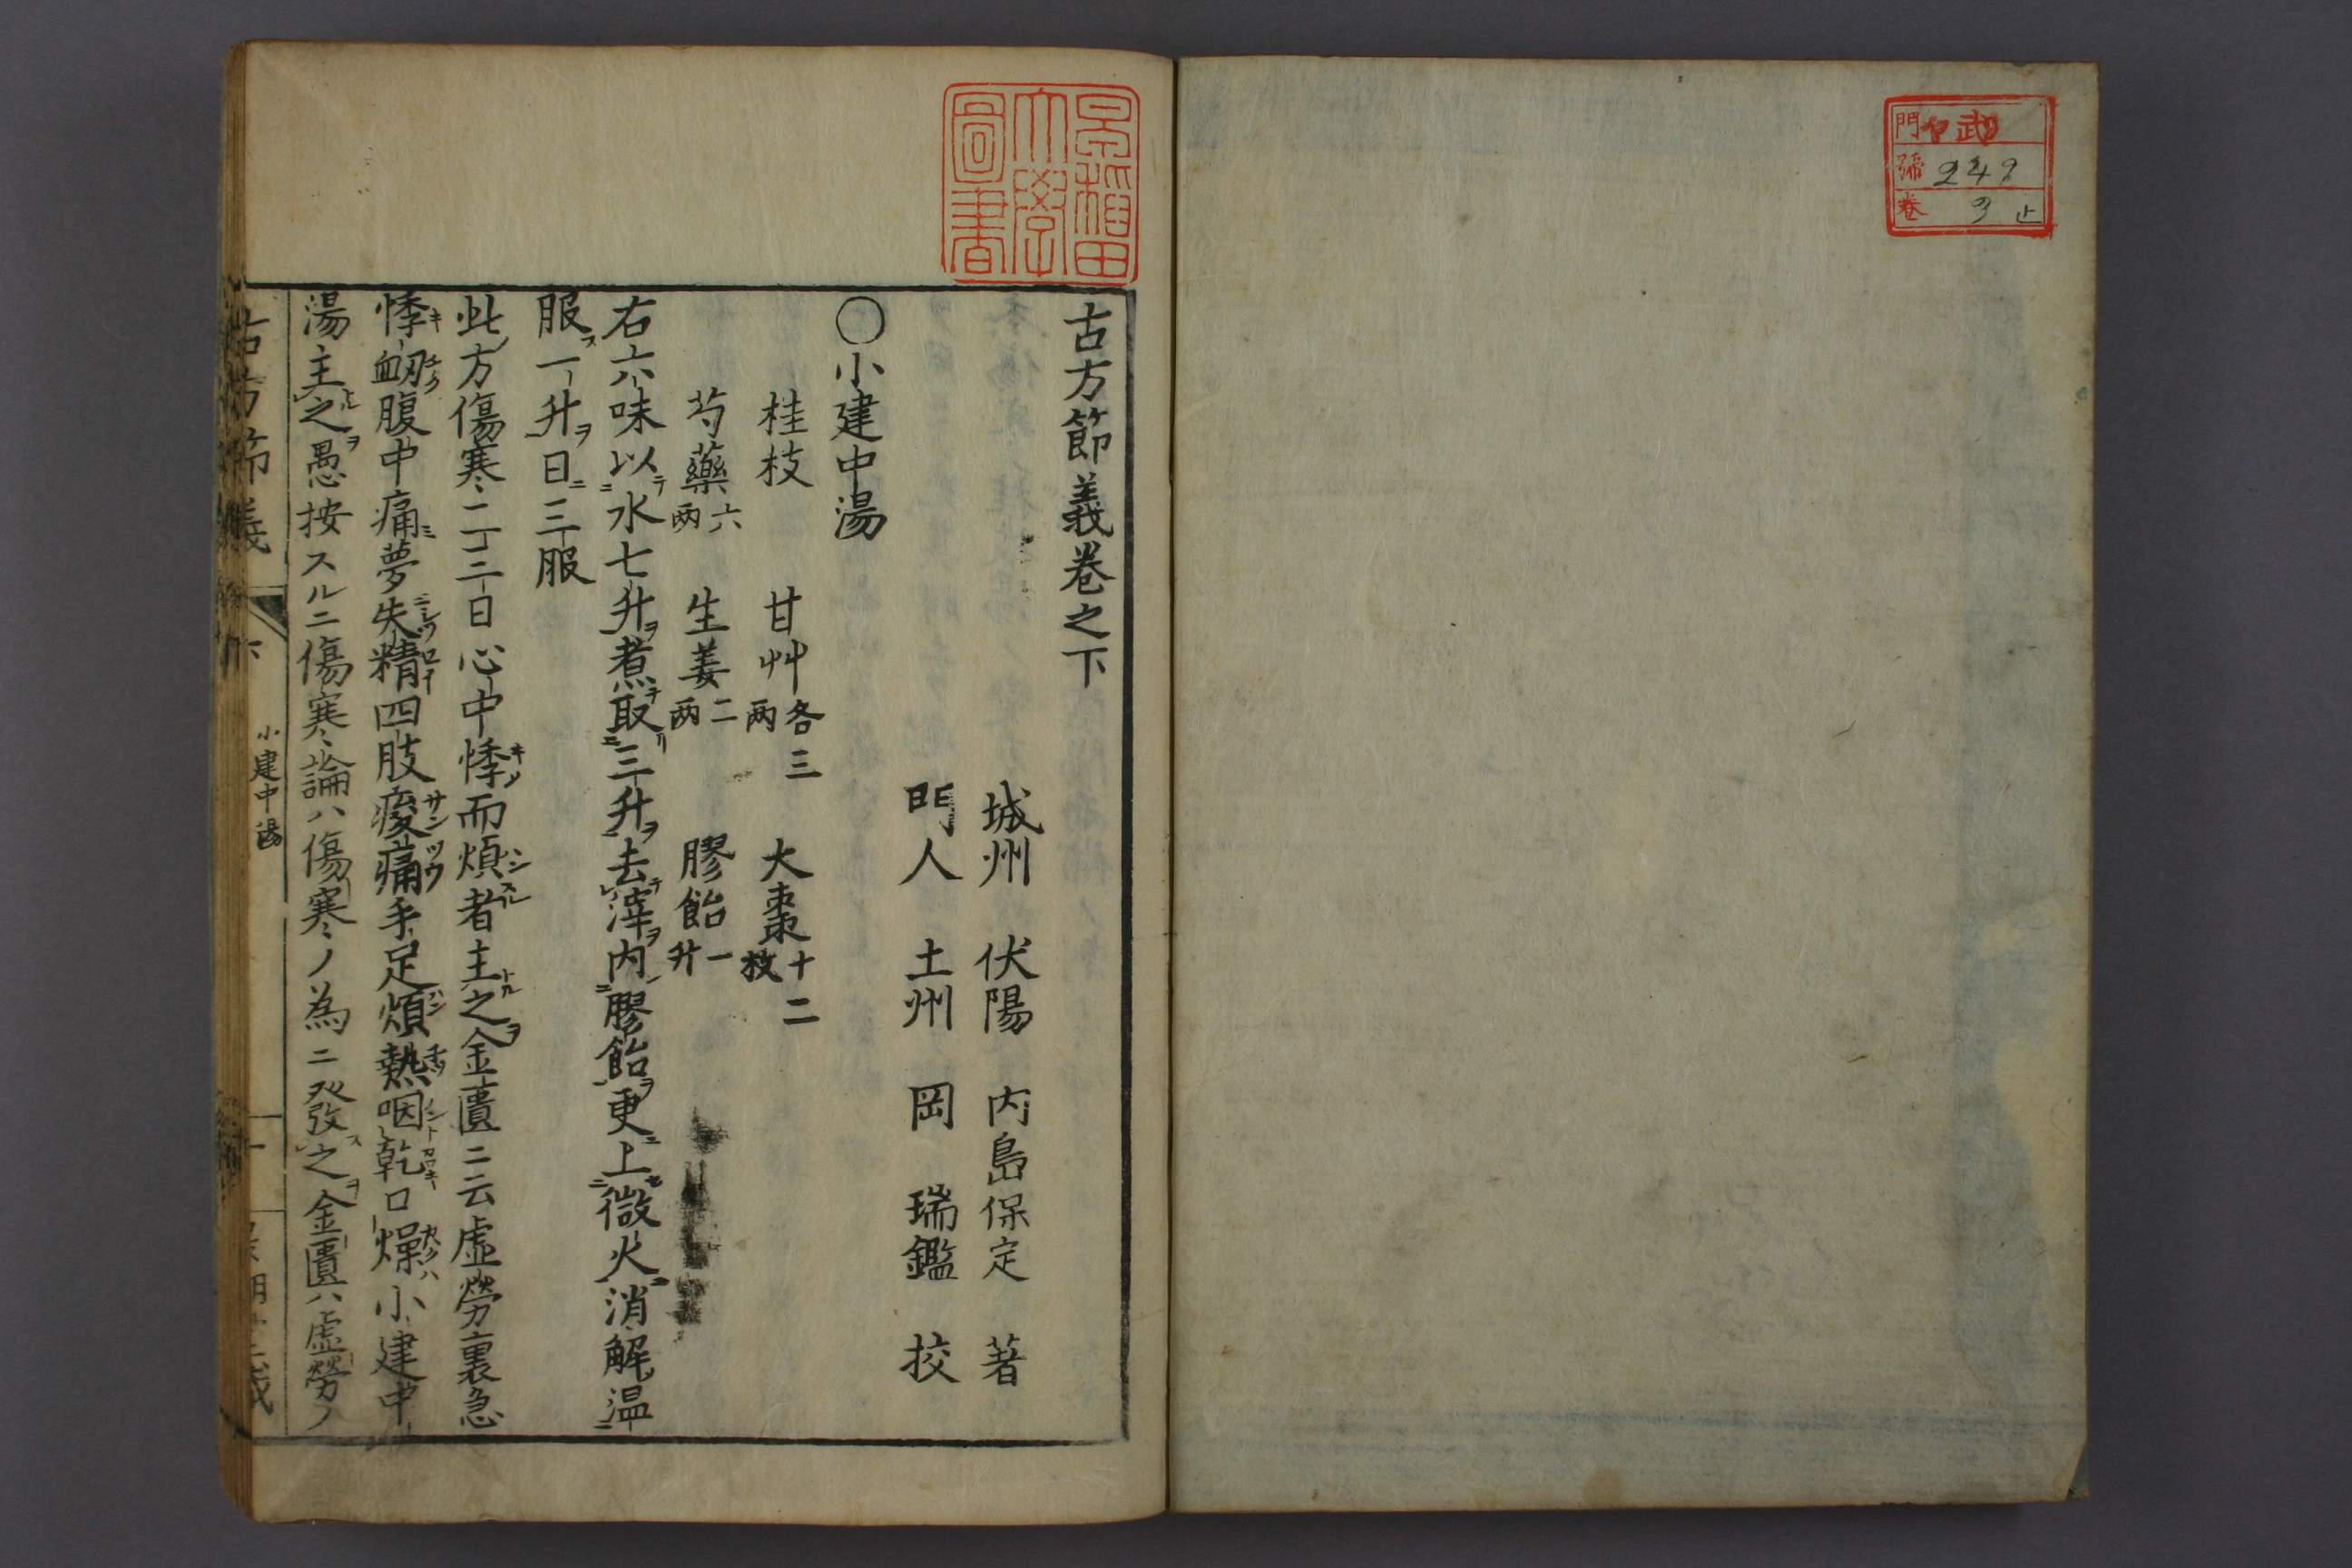 門 ヤ 武
號 249
卷 3 止
早稲田
大學
圖書
古方節義巻之下
城州 伏陽 内島保定 著
門人 土州 岡 瑞鑑 挍
〇小建中湯
桂枝 甘艸各三両 大棗十二枚
芍藥六両 生姜二両 膠飴一升
右六味以テ水七升ヲ煮テ取リ三升ヲ去テ滓ヲ内膠飴ヲ更ニ上セ微火ニ消解温ニ
服スヿ一升ヲ日ニ三服
此ノ方傷寒二三日心中悸而煩者主之ヲ金匱ニ云虚勞裏急
悸衂腹中痛ミ夢失精四肢痠痛手足煩熱咽乾口燥小建中
湯主之ヲ愚按スルニ傷寒論ハ傷寒ノ為ニ發ス之ヲ金匱ハ虚勞ノ
古方節義 下 小建中湯 一